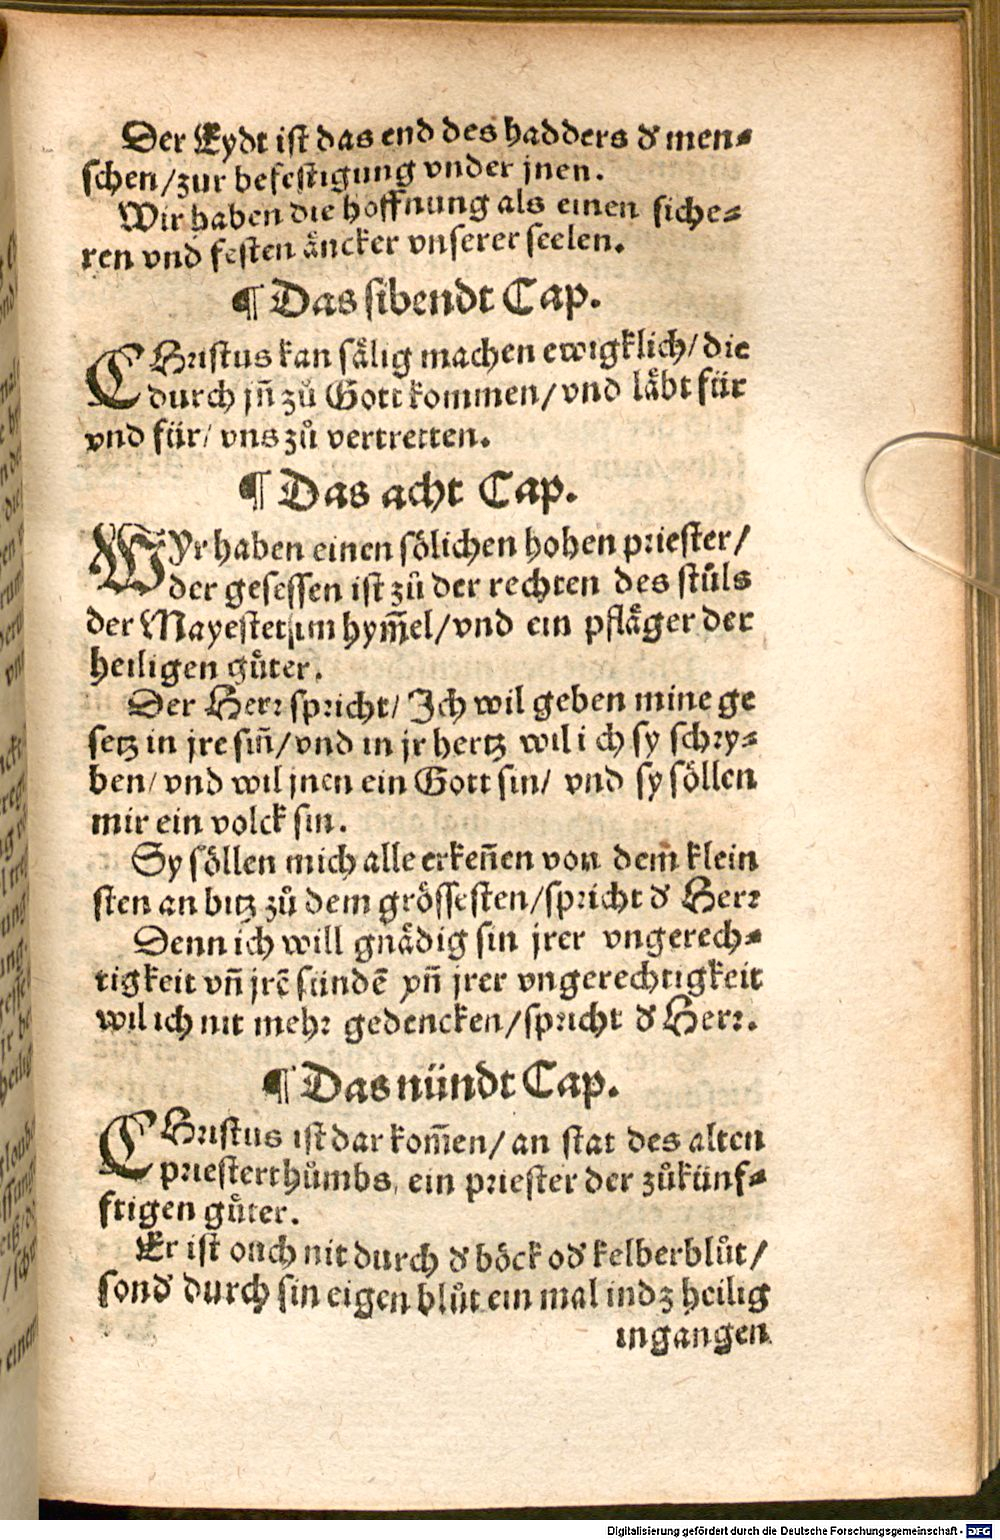 Der Eydt ist das end des hadders đ men⸗
schen/zur befestigung vnder jnen.
Wir haben die hoffnung als einen siche⸗
ren vnd festen äncker vnserer seelen.
¶ Das sibendt Cap.
CHristus kan sälig machen ewigklich/die
durch jñ zů Gott kommen/vnd läbt für
vnd für/ vns zů vertretten.
¶ Das acht Cap.
WYr haben einen sölichen hohen priester/
der gesessen ist zů der rechten des stůls
der Mayestet/im hym̃el/vnd ein pfläger der
heiligen güter.
Der Herr spricht/ Ich wil geben mine ge
setz in jre siñ/vnd in jr hertz wil i ch sy schry⸗
ben/vnd wil jnen ein Gott sin/ vnd sy söllen
mir ein volck sin.
Sy söllen mich alle erkeñen von dem klein
sten an bitz zů dem grössesten/spricht đ Herr
Denn ich will gnädig sin jrer vngerech⸗
tigkeit vñ jrẽ sündẽ vñ jrer vngerechtigkeit
wil ich nit mehr gedencken/spricht đ Herr.
¶ Das nündt Cap.
CHristus ist dar kom̃en/an stat des alten
priesterthůmbs, ein priester der zůkünf⸗
ftigen güter.
Er ist ouch nit durch đ böck ođ kelberblůt/
sonđ durch sin eigen blůt ein mal indz heilig
ingangen
Digitalisierung gefördert durch die Deutsche Forschungsgemeinschaft - DFG